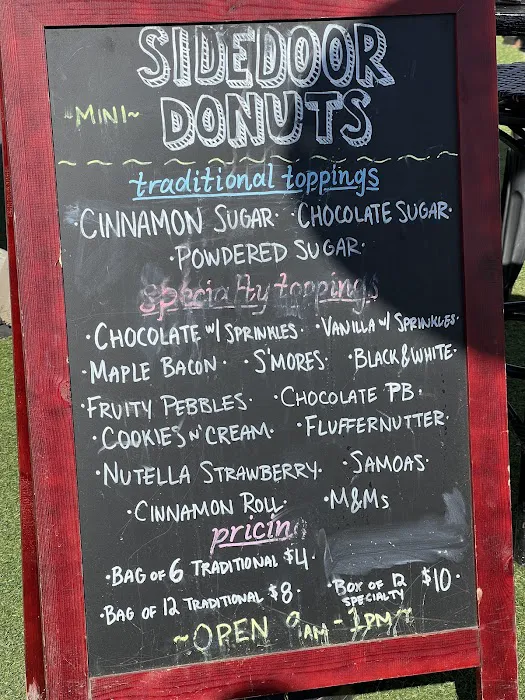 SIDEDOOR
~MINI~ DONUTS
traditional toppings
·CINNAMON SUGAR· ·CHOCOLATE SUGAR·
·POWDERED SUGAR·
specialty toppings
·CHOCOLATE W/ SPRINKLES· ·VANILLA W/ SPRINKLES·
·MAPLE BACON· ·S'MORES· ·BLACK & WHITE·
·FRUITY PEBBLES· ·CHOCOLATE PB·
·COOKIES N' CREAM· ·FLUFFERNUTTER·
·NUTELLA STRAWBERRY· ·SAMOAS·
·CINNAMON ROLL· ·M&Ms
pricin
·BAG OF 6 TRADITIONAL $4·
·BAG OF 12 TRADITIONAL $8· ·BOX OF 12 SPECIALTY $10·
~OPEN 9AM - 1PM~